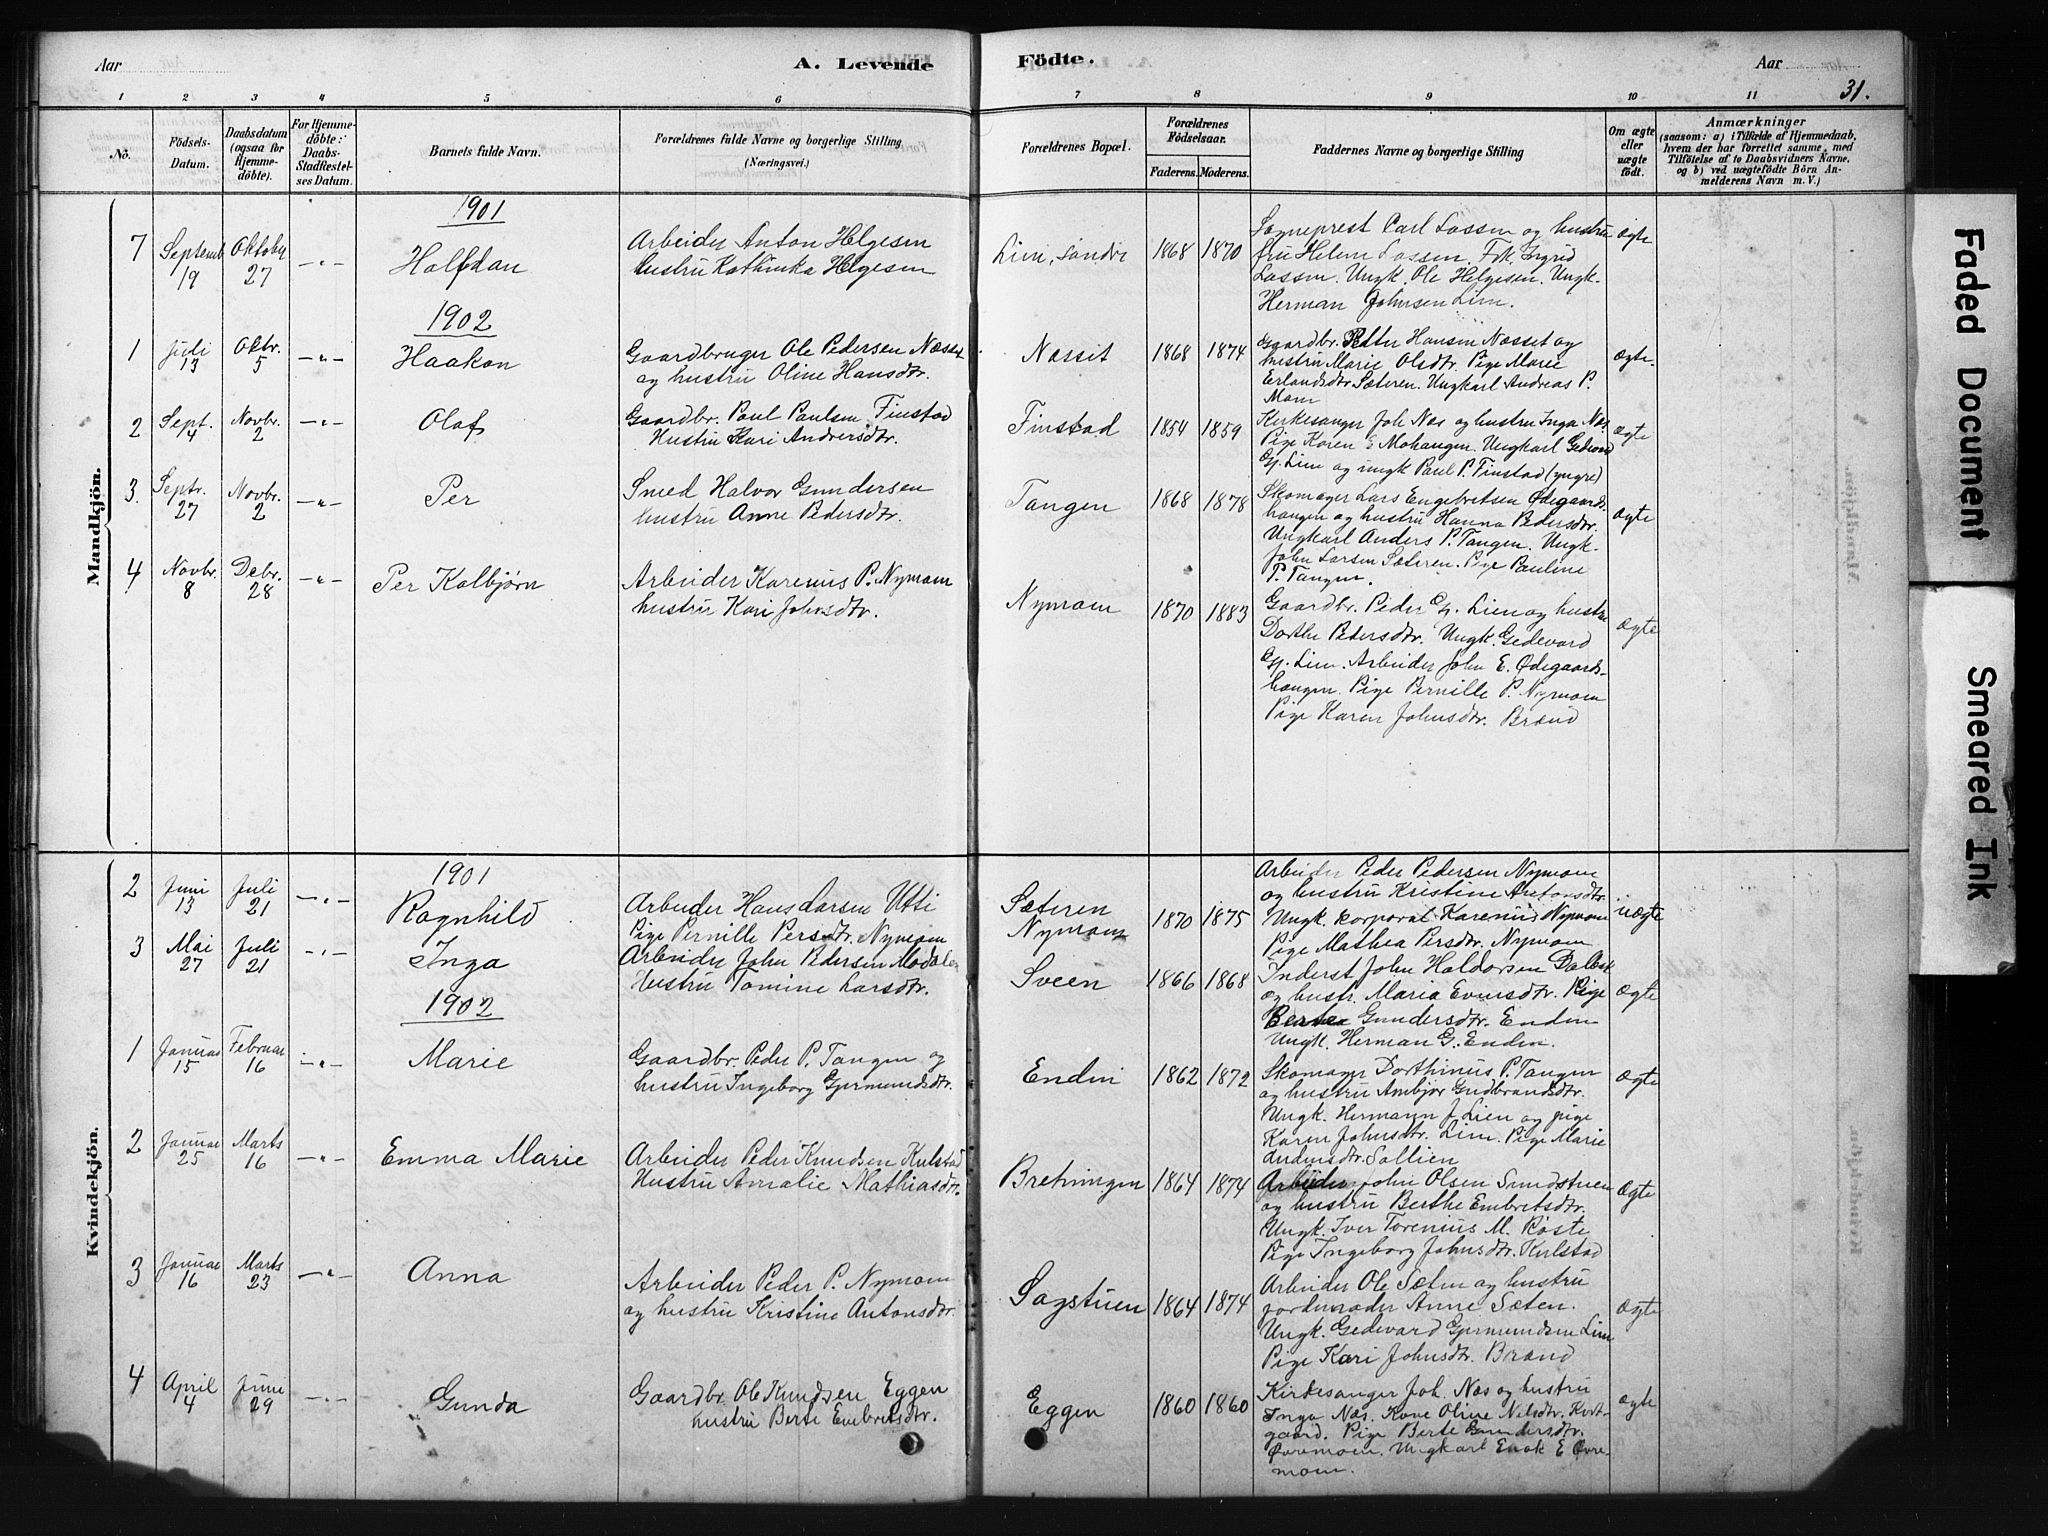 Aar
A. Levende
Födte.
Aar
31.
1 2 3 4 5 6 7 8 9 10 11
No.
Födsels-
Datum.
Daabsdatum
(ogsaa for
Hjemme-
döbte).
For Hjemme-
döbte:
Daabs-
Stadfæstel-
ses Datum.
Barnets fulde Navn.
Forældrenes fulde Navne og borgerlige Stilling
(Næringsvei.)
Forældrenes Bopæl.
Forældrenes
Födselsaar.
Faderens. Moderens.
Faddernes Navne og borgerlige Stilling
Om ægte
eller
uægte
födt.
Anmærkninger
(saasom: a) i Tilfælde af Hjemmedaab,
hvem der har forrettet samme, med
Tilföielse af to Daabsvidners Navne,
og b) ved uægtefödte Börn An-
melderens Navn m. V.)
Mandkjön.
1901
7
Septemb
19
Oktober
27
-„-
Halfdan
Arbeider Anton Helgesen
hustru Kathinka Helgesen
Lien, Søndre
1868
1870
Sogneprest Carl Lassen og hustru
fru Helene Lassen, Frk. Ingrid
Lassen. Ungk. Ole Helgesen. Ungk.
Herman Johnsen Lien.
ægte
1902
1
Juli
13
Oktr.
5
-„-
Haakon
Gaardbruger Ole Pedersen Næsset
og hustru Oline Hansdtr.
Næsset
1868
1874
Gaardbr. Petter Hansen Næsset og
hustru Marie Olsdtr. Pige Marie
Erlandsdtr. Sæteren. Ungkarl Andreas P.
Moen
ægte.
2
Sept.
4
Novbr.
2
-„-
Olaf
Gaardbr. Paul Paulsen Finstad
Hustru Kari Andersdtr.
Finstad
1854
1859
Kirkesanger Joh Næs og hustru Inga Næs.
Pige Karen E Mohaugen. Ungkarl Gedevard
Gj. Lien og ungk Paul P. Finstad (yngre)
ægte
3.
Septr.
27
Novbr.
2
-„-
Per
Smed Halvor Gundersen
hustru Anne Pedersdtr.
Tangen
1868
1878
Skomager Lars Engebretsen Ødegaards-
haugen og hustru Hanna Pedersdtr.
Ungkarl Anders P. Tangen. Ungk.
John Larsen Sæteren. Pige Pauline
P. Tangen.
ægte
4
Novbr.
8
Debr.
28
-„-
Per Kolbjørn
Arbeider Karenus P. Nymoen
hustru Kari Johnsdtr.
Nymoen
1870
1883
Gaardbr. Peder Gj. Lien og hustru
Dorthe Pedersdtr. Ungk. Gedevard
Gj. Lien. Arbeider John E. Ødegaards-
haugen. Pige Pernille P. Nymoen
Pige Karen Johnsdtr. Brænd
ægte
Kvindekjön.
1901
2
Juni
13
Juli
21
-„-
Ragnhild
Arbeider Hans Larsen Utti
Pige Pernille Persdtr. Nymoen
Sæteren
Nymoen
1870
1875
Arbeider Peder Pedersen Nymoen
og hustru Kristine Antonsdtr.
Ungk. korporal Karenus Nymoen
Pige Mathea Persdtr. Nymoen
uægte
3
Mai
27
Juli
21
-„-
Inga
Arbeider John Pedersen Modalen
Hustru Tomine Larsdtr.
Sveen
1866
1868
Inderst John Haldorsen
og hustr. Maria Evensdtr. Pige
Berte Gundersdtr. Enden
Ungk. Herman G. Enden.
ægte
1902
1
Januar
15
Februar
16
-„-
Marie
Gaardbr. Peder P. Tangen og
hustru Ingeborg Gjermundsdtr.
Enden
1862
1872
Skomager Dorthinus P. Tangen
og hustru Ambjør Gudbrandsdtr.
Ungk. Hermann J. Lien og pige
Karen Johnsdtr. Lien. Pige Marie
Andersdtr. Sollien
ægte
2
Januar
25
Marts
16
-„-
Emma Marie
Arbeider Peder Knudsen Kulstad
Hustru Amalie Mathiasdtr.
Bretningen
1864
1874
Arbeider John Olsen Sandstuen
og hustru Berthe Embretsdtr.
Ungk. Iver Torenius M. Røste
Pige Ingeborg Johnsdtr. Kulstad
ægte
3
Januar
16
Marts
23
-„-
Anna
Arbeider Peder P. Nymoen
og hustru Kristine Antonsdtr.
Sagstuen
1864
1874
Arbeider Ole Sæten og hustru
jordmoder Anne Sæten.
Ungk. Gedevard Gjermundsen Lien
Pige Kari Johnsdtr. Brænd
ægte
4
April
4
June
29
-„-
Gunda
Gaardbr Ole Knudsen Eggen
hustru Berte Embretsdtr.
Eggen
1860
1860
Kirkesanger Joh. Næs og hustru
Inga Næs. Kone Oline Nilsdtr. Kvit-
gaard. Pige Berte Gundersdtr.
Øvremoen. Ungkarl Enok E Øvre-
moen.
ægte
Faded Document
Smeared Ink